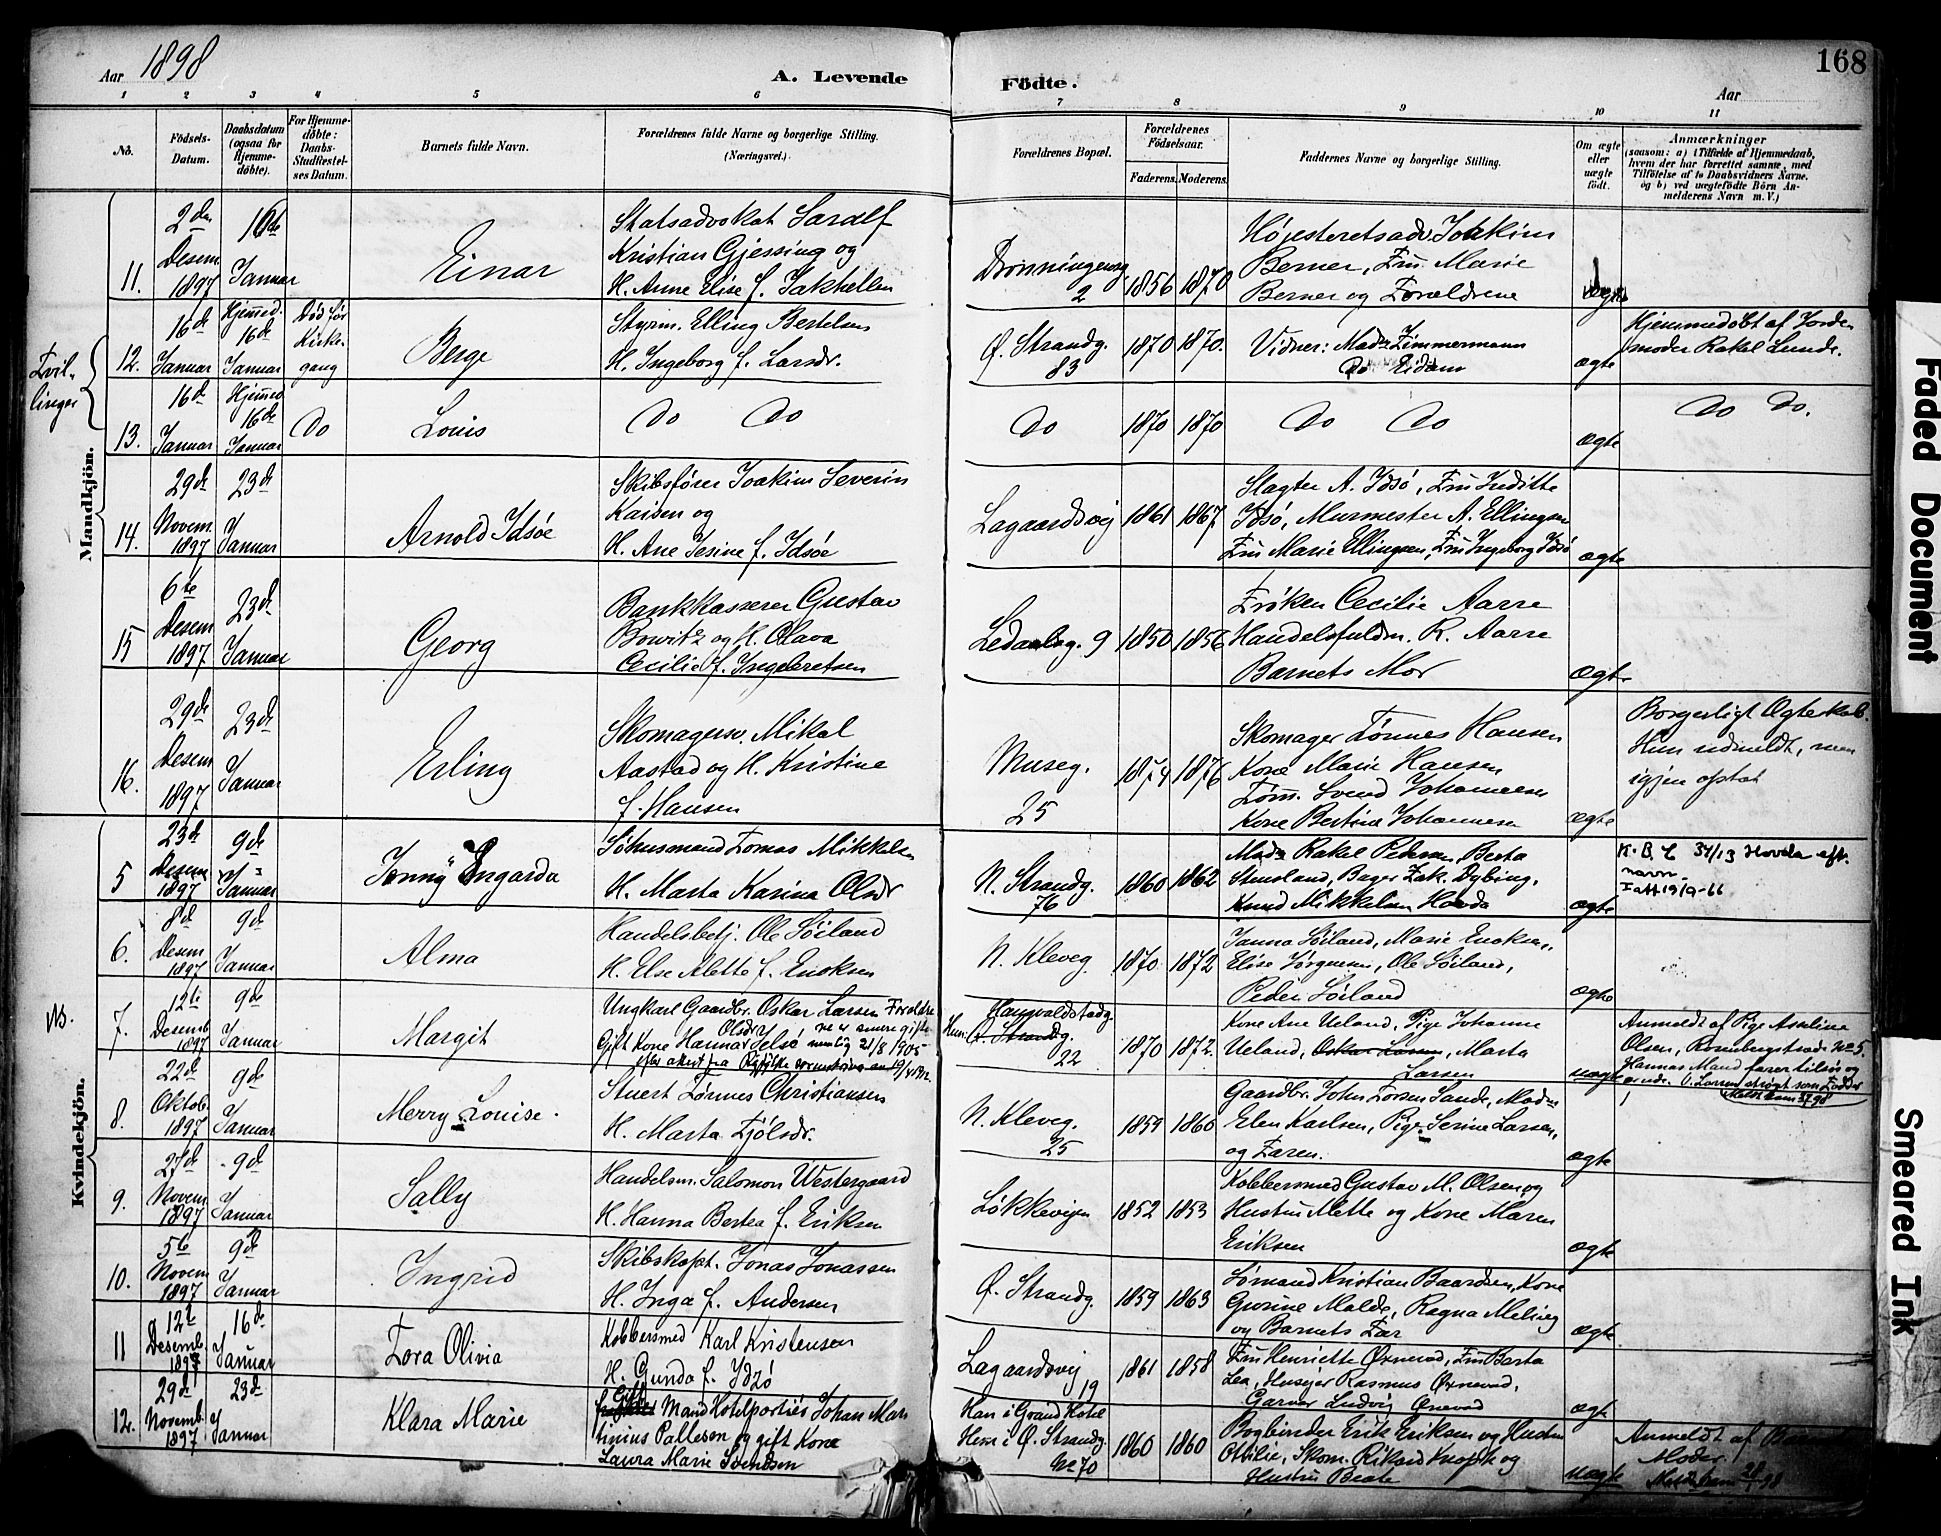 Aar 1898
A. Levende
Födte.
Aar
168
1 2 3 4 5 6 7 8 9 10 11
No.
Födsels-
Datum.
Daabsdatum
(ogsaa for
Hjemme-
døbte).
For Hjemme-
døbte:
Daabs-
Stadfæstel-
ses Datum.
Barnets fulde Navn.
Forældrenes fulde Navne og borgerlige Stilling.
(Næringsvei.)
Forældrenes Bopæl.
Forældrenes
Fødselsaar.
Faderens. Moderens.
Faddernes Navne og borgerlige Stilling.
Om ægte
eller
uægte
født.
Anmærkninger
(saasom: a) i Tilfælde af Hjemmedaab,
hvem der har forrettet samme, med
Tilføielse af to Daabsvidners Navne,
og b) ved uægtefödte Börn An-
melderens Navn m. V.)
Mandkjön.
11.
Desem
1897
Januar
Einar
Statsadvokat
Kristian Gjessing og
H. Anne Elise f. Jakhelln
Dronningensg.
2
1856 1870
Høiesteretsadv. Joakim
Berner, Fru Marie
Berner og Forældrene
ægte
Tvil-
linger
12.
16de
Januar
Hjemmed.
16de
Januar
Død før
Kirke-
gang
Berge
Styrm. Elling Bertelsen
H. Ingeborg f. Larsdr.
Ø. Strandg.
83
1870 1870.
Vidner: Mad. Zimmermann
Do Eidam
ægte
Hjemmedøbt af Jorde-
moder Rakel Lunde.
13.
16de
Januar
Hjemmed
16de
Januar
Do
Louis
Do Do
Do
1870 1870
Do Do
ægte
Do Do.
14.
29de
Novem
1897
23de
Januar
Arnold Idsöe
Skibsfører Joakim Severin
Kaisen og
H. Ane Jesine f. Idsöe
Lagaardsvej
1861 1867
Slagter A. Idsö, Fru Freditte
Idsö, Murmester A. Ellingsen
Fru Marie Ellingsen, Fru Ingeborg Idsö
ægte
15
6te
Desem
1897
23de
Januar
Georg
Bankkasserer Gustav
Bowitz og H. Olava
Cecilie f. Ingebretsen
Ledaalsg. 9
1850 1856
Frøken Cecilie Aarre
Handelsfuldm. R. Aarre
Barnets Mor
ægte
16.
29de
Desem
1897
23de
Januar
Erling
Skomagersv. Mikal
Aastad og H. Kristine
f. Hansen
Museg.
25
1874 1876
Skomager Tönnes Hansen
Kone Marie Hansen
Töm. Svend Johannesen
Kone Bertine Johannesen
ægte
Borgerligt Ægteskab.
Hun udmeldt, men
igjen optat
Kvindekjön.
5
23de
Desem
1897
9de
Januar
Jenny Ingarda
Søhusmand Tomas Mikkelsen
H. Marta Karina Olsdr
N. Strandg.
76
1860 1862
Mad. Rakel Pedersen, Berta
Stensland, Bager Zak. Dybing,
Knud Mikkelsen Hovda
ægte
K.B.E 34/13 Hovda eft.
navn.
Fatt 19/9-66
6.
8de
Desem
1897
9de
Januar
Alma
Handelsbetj. Ole Söiland
H. Else Alette f. Enoksen
N. Kleveg.
1870 1872
Janna Söiland, Marie Enoksen,
Elise Jörgensen, Ole Söiland,
Peder Söiland
ægte
NB.
7.
12te
Desemb
1897
9de
Januar
Margit
Ungkarl Gaardbr. Oskar Larsen Foreldre
Gift Kone Hanna Olsdr Jelsö
nemlig 21/8 1905
Haugvaldstadg.
Ø. Strandg.
22
1870 1872.
Kone Ane Ueland, Pige Johanne
Ueland, Oskar Larsen, Marta
Larsen
uægte
Anmeldt af Pige Asseline
Olsen, Rosenbergstrade No 5.
8.
22de
Oktob.
1897
9de
Januar
Merry Louise.
Stuert Tönnes Christiansen
H. Marta Fjölsdr.
N. Kleveg.
25
1859 1860
Gaardbr. John Torsen Sande, Mad.
Elen Karlsen, Pige Serine Larsen,
og Faren.
ægte
9.
27de
Novem
1897
9de
Januar
Sally
Handelsm. Salomon Westergaard
H. Hanna Bertea f. Eriksen
Løkkevejen
1852 1853
Kobbersmed Gustav M. Olsen og
Hustru Mette og Kone Maren
Eriksen
ægte
10.
5te
Novem
1897
9de
Januar
Ingrid
Skibskapt. Jonas Jonassen
H. Inga f. Andersen
Ø. Strandg.
1859 1863
Sømand Kristian Baardsen, Kone
Gurine Malde, Ragna Meling
og Barnets Far
ægte
11
12te
Desemb.
1897
16de
Januar
Tora Olivia
Kobbersmed Karl Kristensen
H. Gunda f. Idsö
Lagaardsvej
19
1861 1858
Fru Henriette Øxnevad, Fru Berta
Lea, Huseier Rasmus Øxnevad,
Garver Ludvig Øxnevad
ægte
12.
29de
Novemb.
1897
23de
Januar
Klara Marie
Gift Mand Hotelportier Johan Mar-
tinius Pallesen og gift Kone
Laura Marie Svendsen
Han i Grand Hotel
Hun i Ø. Strandg.
No 70
1860 1860
Bogbinder Erik Eriksen og Hustru
Ottilie, Skom. Rikard Knoph og
Hustru Beate
uægte
Anmeldt af Barnets
Moder.
Faded Document
Smeared Ink